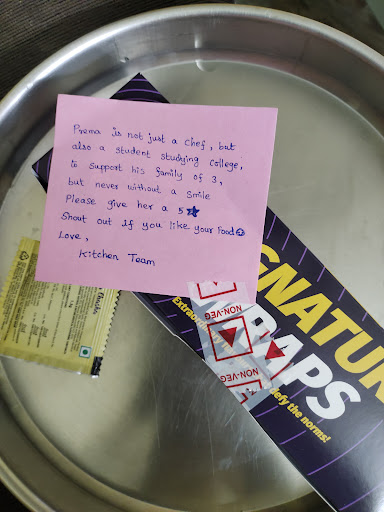 Prema is not just a chef, but
also a student studying college,
to support his family of 3,
but never without a smile
Please give her a 5 ★
Shout out if you like your Food
Love,
Kitchen Team
GNATUR
WRAPS
Extraordin
defy the norms!
NON-VEG
NON-VEG
NON-VEG